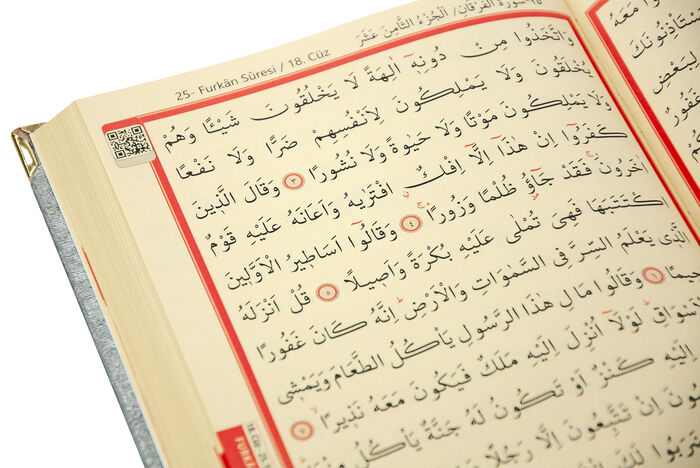 25- Furkân Sûresi / 18. Cüz
سُورَةُ الْفُرْقَانِ / اَلْجُزْءُ الثَّامِنَ عَشَرَ
وَاتَّخَذُوا مِنْ دُونِهٖٓ اٰلِهَةً لَا يَخْلُقُونَ شَيْـًٔا وَهُمْ
يُخْلَقُونَ وَلَا يَمْلِكُونَ لِاَنْفُسِهِمْ ضَرًّا وَلَا نَفْعًا
وَلَا يَمْلِكُونَ مَوْتًا وَلَا حَيٰوةً وَلَا نُشُورًا ٣ وَقَالَ الَّذٖينَ
كَفَرُٓوا اِنْ هٰذَٓا اِلَّٓا اِفْكٌ افْتَرٰيهُ وَاَعَانَهُ عَلَيْهِ قَوْمٌ
اٰخَرُونَ فَقَدْ جَٓاؤُ ظُلْمًا وَزُورًا ٤ وَقَالُٓوا اَسَاطٖيرُ الْاَوَّلٖينَ
اكْتَتَبَهَا فَهِىَ تُمْلٰى عَلَيْهِ بُكْرَةً وَاَصٖيلًا ٥ قُلْ اَنْزَلَهُ
الَّذٖى يَعْلَمُ السِّرَّ فِى السَّمٰوَاتِ وَالْاَرْضِ اِنَّهُ كَانَ غَفُورًا
ٖيمًا ٦ وَقَالُوا مَالِ هٰذَا الرَّسُولِ يَاْكُلُ الطَّعَامَ وَيَمْشٖى
لَوْلَٓا اُنْزِلَ اِلَيْهِ مَلَكٌ فَيَكُونَ مَعَهُ نَذٖيرًا ٧
اِلَيْهِ كَنْزٌ اَوْ تَكُونُ لَهُ جَنَّةٌ يَاْكُلُ
اِنْ تَتَّبِعُونَ اِلَّا رَجُلًا
مَعَهُ